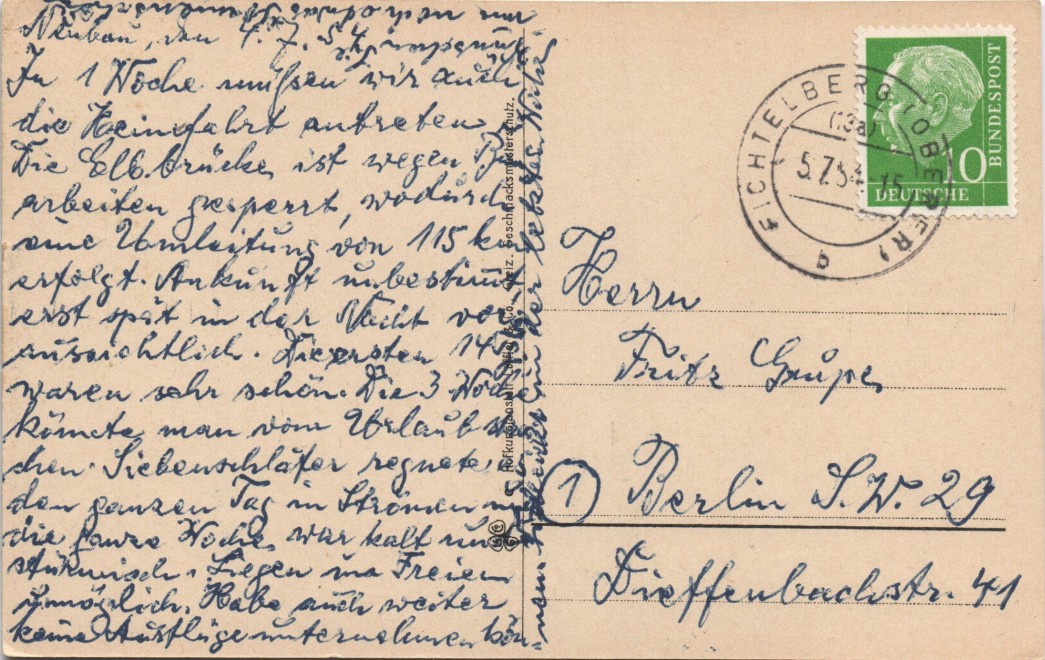 Neubau, den 4. 7. 54.
In 1 Woche müßen wir auch
die Heimfahrt antreten.
Die Elbbrücke ist wegen
arbeiten gesperrt, wodurch
eine Umleitung von 115 km
erfolgt. Ankunft unbestimmt
erst spät in der Nacht vor-
aussichtlich. Die ersten 14
waren sehr schön. Die 3. Woche
könnte man vom Urlaub
chen. Siebenschläfer regnete es
den ganzen Tag in Strömen
die ganze Woche war kalt und
stürmisch. Liegen im Freien
unmöglich. Habe auch weiter
keine Ausflüge unternehmen kön-
nen
in der letzten
Herrn
Fritz Gaupe,
1 Berlin S.W. 29
Dieffenbachstr. 41
FICHTELBERG (OBERFR)
(13a)
5.7.54.-15
b
10
DEUTSCHE
BUNDESPOST
Geschmacksmusterschutz.